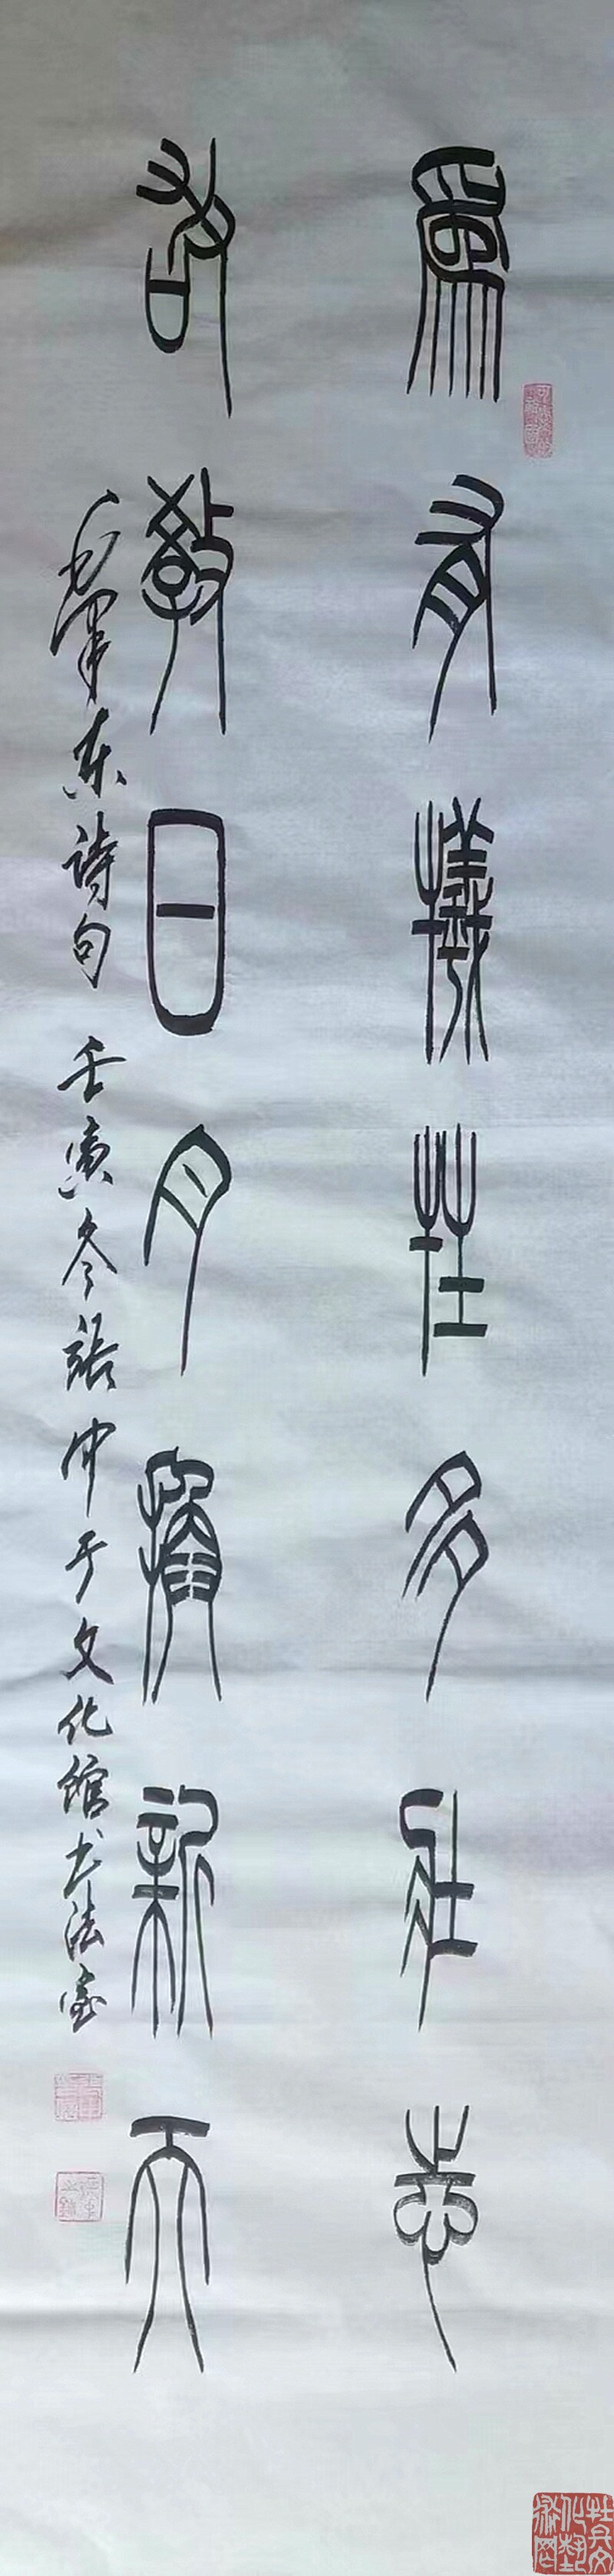 爲有犧牲多壯志
敢教日月換新天
毛澤东诗句 壬寅冬張中于文化館书法室